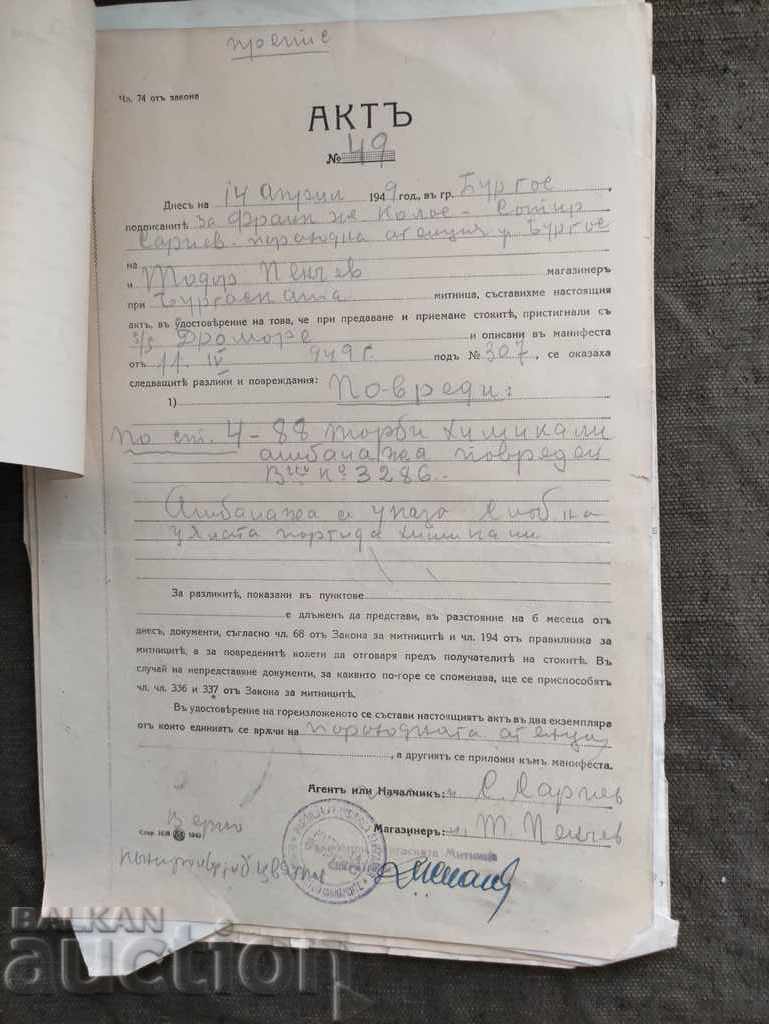 Чл. 74 отъ закона
АКТЪ
№ 49
Днесъ на 14 април 1949 год., въ гр. Бургас,
подписанитѣ за Франк
Сариев. параходна агенция гр Бургас
на
и Тодор Пенчев магазинеръ
при Бургаската митница, съставихме настоящия
актъ, въ удостовѣрение на това, че при предаване и приемане стокитѣ, пристигнали съ
Дроморе и описани въ манифеста
отъ 11. IV 949 г. подъ № 307, се оказаха
следващитѣ разлики и повреждания:
1) Повреди:
по ст. 4 - 88 торби химикали
амбалажа повреден
3286.-
Амбалажа се указа слаб на
цялата партида химикали
За разликитѣ, показани въ пунктове
е длъженъ да представи, въ разстояние на 6 месеца отъ
днесъ, документи, съгласно чл. 68 отъ Закона за митницитѣ и чл. 194 отъ правилника за
митницитѣ, а за повреденитѣ колети да отговаря предъ получателитѣ на стокитѣ. Въ
случай на непредставяне документи, за каквито по-горе се споменава, ще се приспособятъ
чл. чл. 336 и 337 отъ Закона за митницитѣ.
Въ удостовѣрение на гореизложеното се състави настоящиятъ актъ въ два екземпляра
отъ които единиятъ се врѫчи на параходната агенция
, а другиятъ се приложи къмъ манифеста.
Агентъ или Началникъ: С. Сариев
Вярно
Магазинеръ: Т. Пенчев
Бургаската Митница
BALKAN
auction